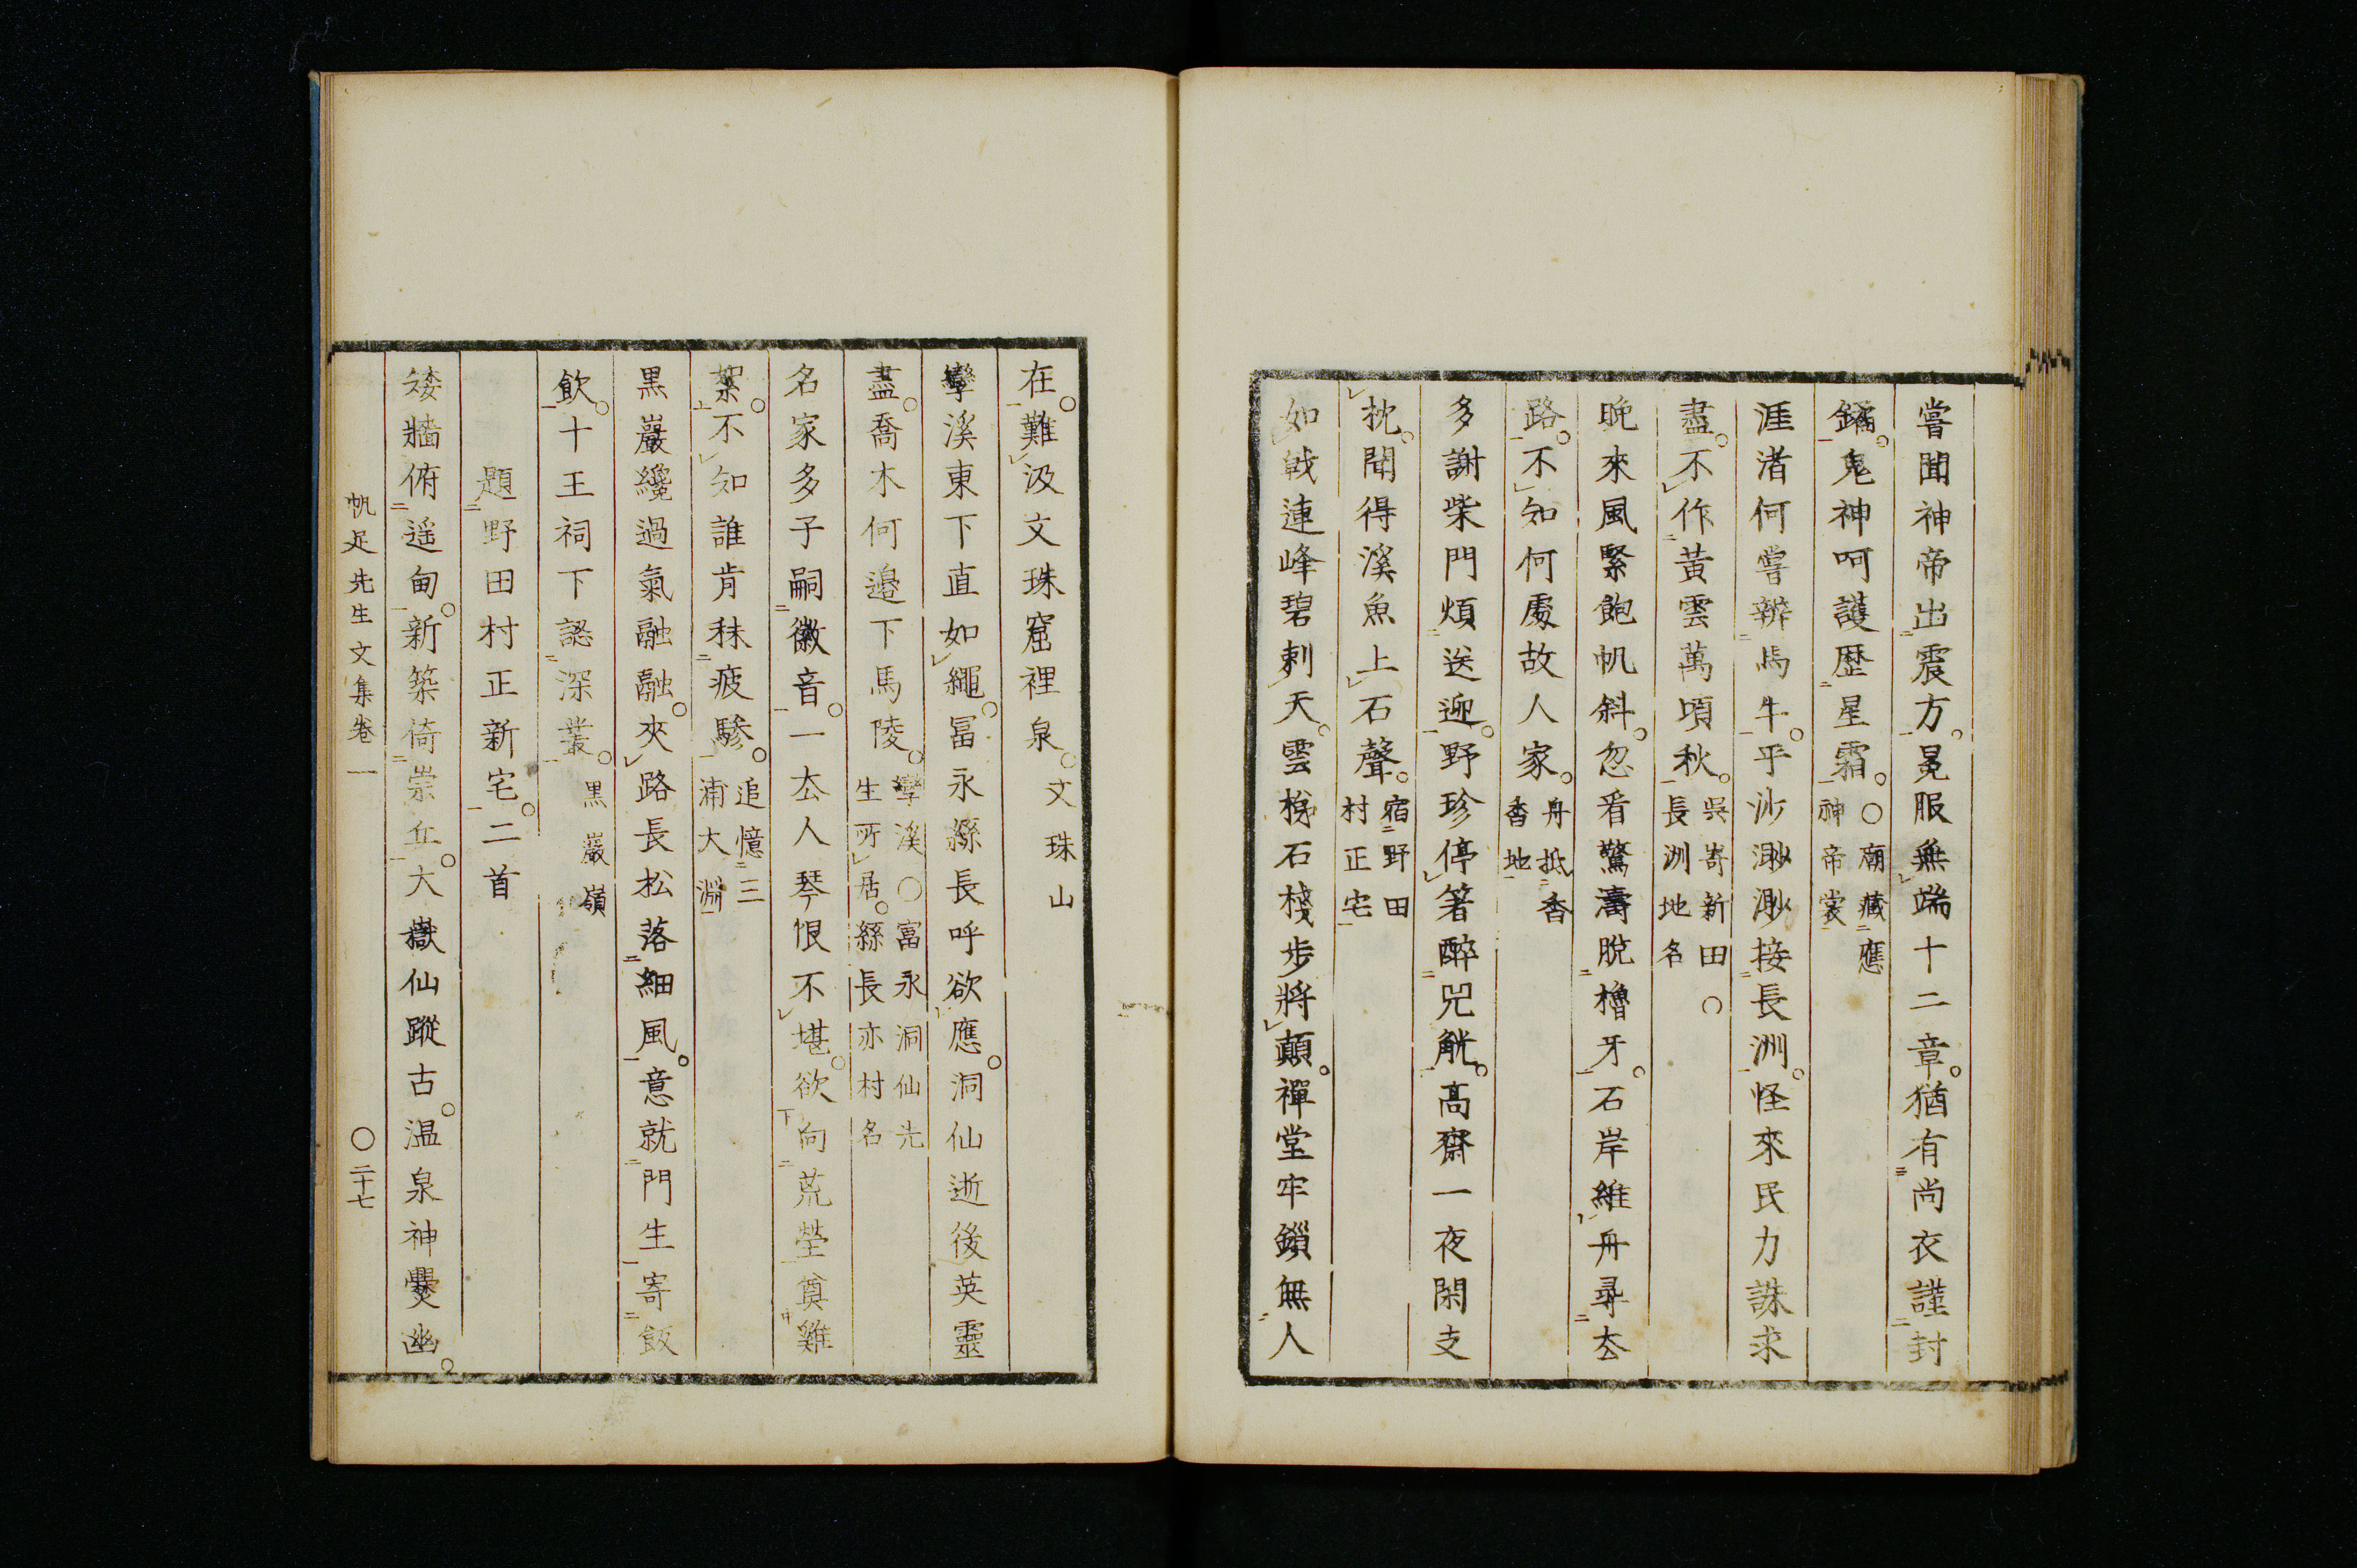 嘗聞神帝出震方。冕服無端十二章。猶有尚衣謹封
鐍。鬼神呵護歴星霜。○廟藏應
神帝裳
涯渚何嘗辨馬牛。平沙渺渺接長洲。怪來民力誅求
盡。不作黃雲萬頃秋。吳嵜新田○
長洲地名
晚來風緊飽帆斜。忽看驚濤脫櫓牙。石岸維舟尋去
路。不知何處故人家。舟抵香
香地
多謝柴門煩送迎。野珍停箸醉兕觥。高齋一夜閑支
枕。聞得溪魚上石聲。宿野田
村正宅
如戟連峰碧刺天。雲梯石棧步將顛。禪堂牢鎖無人
在。難汲文珠窟裡泉。文珠山
孿溪東下直如繩。冨永繇長呼欲應。洞仙逝後英靈
盡。喬木何邉下馬陵。孿溪○富永洞仙先
生所居。繇長亦村名
名家多子嗣徽音。一去人琴恨不堪。欲向荒塋奠雞
絮。不知誰肯秣疲驂。追憶三
浦大淵
黒巖纔過氣融融。夾路長松落細風。意就門生寄飯
飲。十王祠下認深叢。黒巖嶺
題野田村正新宅。二首
矮牆俯遥甸。新築倚崇丘。大嶽仙蹤古。温泉神㸑幽。
帆足先生文集卷一
○二十七